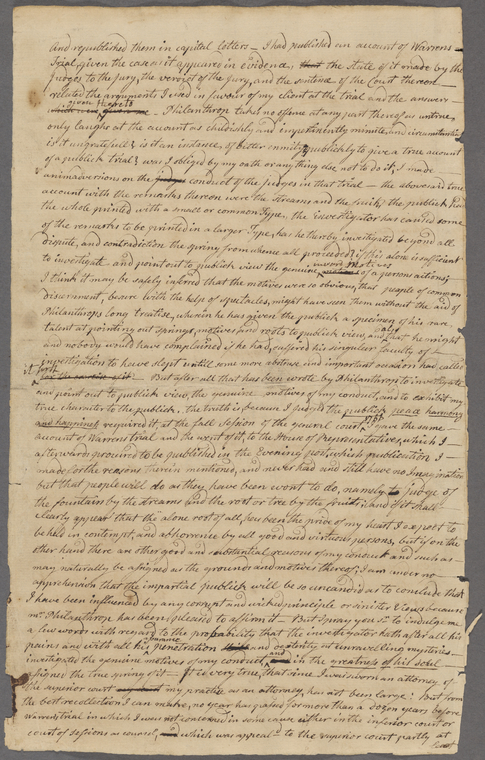 And republished them in capital letters – I had published an account of Warrens
Trial, given the case as it appears in evidence, that the State of it made by the
Judges to the Jury, the verdict of the Jury, and the sentence of the Court thereon –
related the arguments I used in favour of my client at the trial and the answers –
given thereto
Philanthrop takes no offence at any part thereof as untrue,
only laughs at the account as childishly and impertinently minute and circumstantial
is it ungratefull, is it an instance of bitter enmity publickly to give a true account
of a publick trial, was I obliged by my oath or anything else not to do it, I made
animadversions on the Judges conduct of the judges in that trial – the abovesaid true
account with the remarks thereon were the streams and the fruits the publick
the whole printed with a small or common Type, the investigator has caused some
of the remarks to be printed in a larger Type, has he thereby investigated beyond all
dispute, and contradiction the spring from whence all proceeded, if this alone is sufficient
to investigate and point out to publick view the genuine
inward motives
of a persons actions;
I think it may be safely infered that the motives were so obvious, that people of common
discernment, besure with the help of spectacles, might have seen them without the aid of
Philanthrops long treatise, wherein he has given the publick a specimen of his rare
talent at pointing out springs, motives and roots to publick view, and art he might
and nobody would have complained if he had, suffered his singular faculty of –
investigation to have slept untill some more abstruse and important occasion had called
it forth
But after all that has been wrote by Philanthrop to investigate
and point out to publick view, the genuine motives of my conduct, and to exhibit my
true character to the publick, the truth is because I judged the publick peace harmony
and happiness required it, at the fall session of the general court 1766 I gave the same
account of Warrens trial and the event of it, to the House of Representatives, which I –
afterwards procured to be published in the Evening post, which publication I –
made for the reasons therein mentioned, and never had and still have no Imagination
but that people will do as they have been wont to do, namely to judge of
the fountain by the streams and the root or tree by the fruits, and if it shall –
clearly appear that the alone root of all, has been the pride of my heart I expect to
be held in contempt, and abhorrence by all good and virtuous persons, but if on the
other hand there are other good and substantial reasons of my conduct and such as –
may naturally be assigned as the grounds and motives thereof, I am under no
apprehension that the impartial publick will be so uncandid as to conclude that
I have been influenced by any corrupt and wicked principle or sinister views because
Mr. Philanthrop has been pleased to affirm it – But I pray you Sr to indulge me
a few words with regard to the probability that the investigator hath after all his
pains and with all his penetration and dexterity at unravelling mysteries
investigated the genuine motives of my conduct, and in the greatness of his soul
assigned the true spring of it – It is very true, that since I was sworn an attorney of
the superior court my practice as an attorney, has not been large: But from
the best recollection I can make, no year has passed for more than a dozen years before
Warrens trial in which I was not concerned in some cause either in the inferior court or
court of sessions as council, and which was appeald to the superior court partly at
least